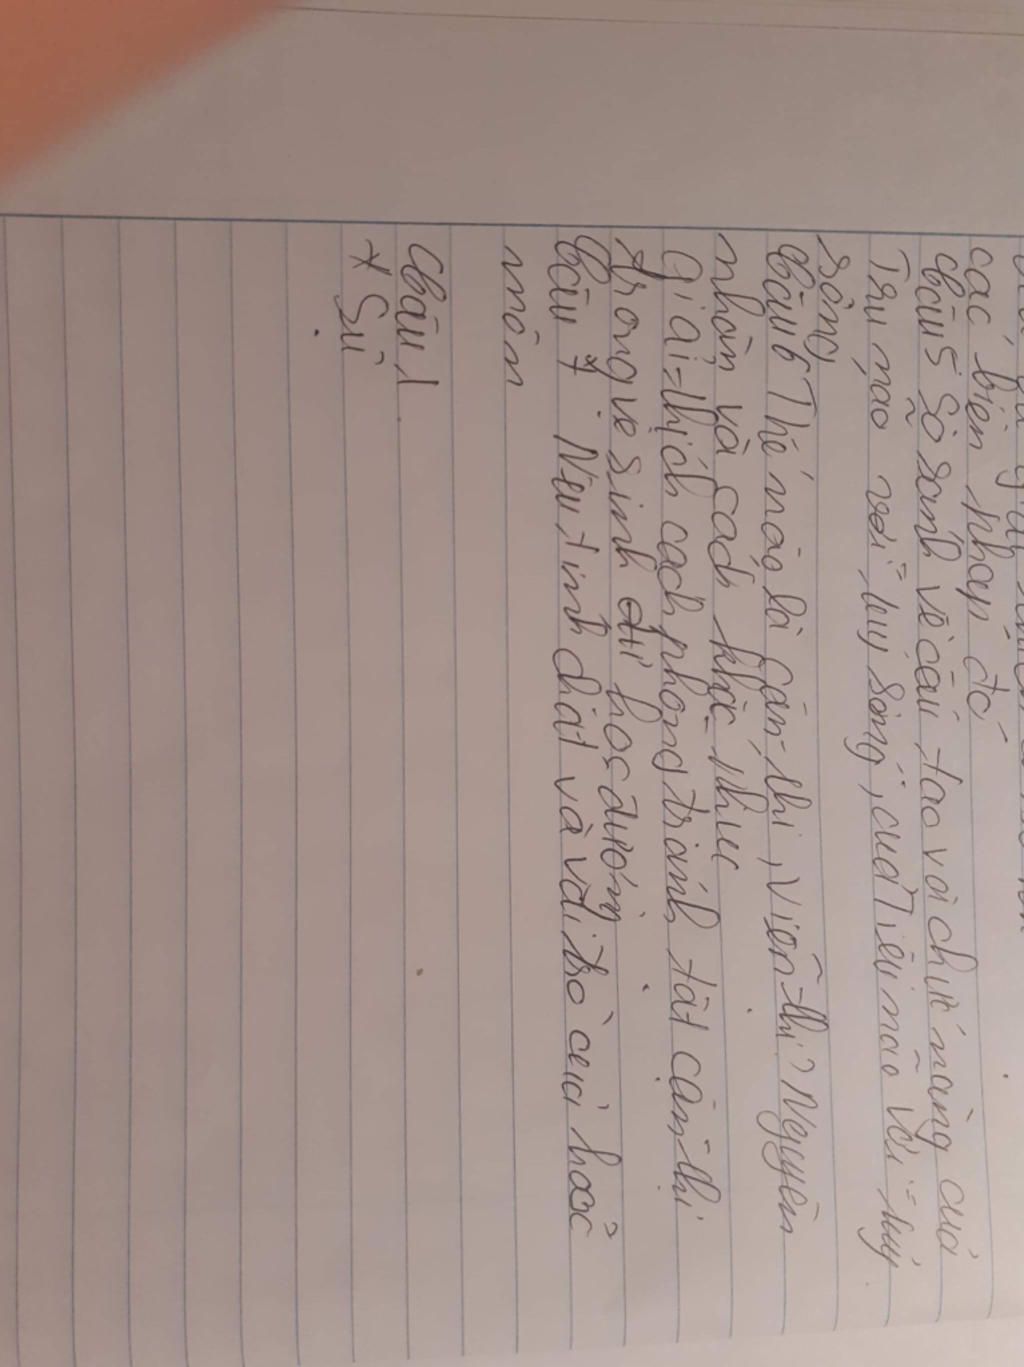 các biện pháp đó
Câu 5 So sánh về cấu tạo và chức năng của
Trụ não với tuỷ sống, của Tiểu não với tuỷ
sống
Câu 6 Thế nào là cận thị, viễn thị? Nguyên
nhân và cách khắc phục
Giải thích cách phòng tránh tật cận thị
trong vệ sinh đi học đường
Câu 7. Nêu tính chất và vai trò của hooc
môn
Câu 1.
* Sử